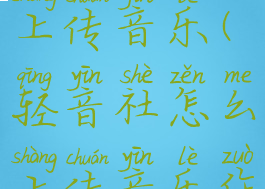 shàng chuán yīn lè
上传音乐(
qīng yīn shè zěn me
轻音社怎么
shàng chuán yīn lè zuò
上传音乐作